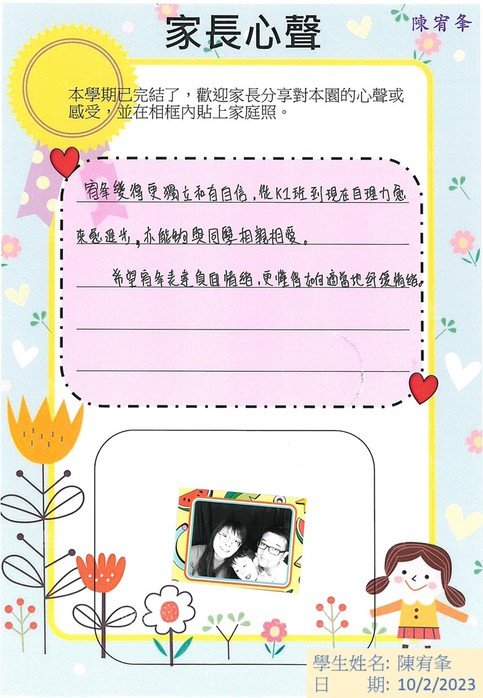 家長心聲
陳宥夆
本學期已完結了，歡迎家長分享對本園的心聲或
感受，並在相框內貼上家庭照。
宥夆變得更獨立和有自信，從K1班到現在自理力愈
來愈進步，亦能夠與同學相親相愛。
希望宥夆表達負面情緒，更懂得如何適當地紓緩情緒。
學生姓名: 陳宥夆
日 期: 10/2/2023